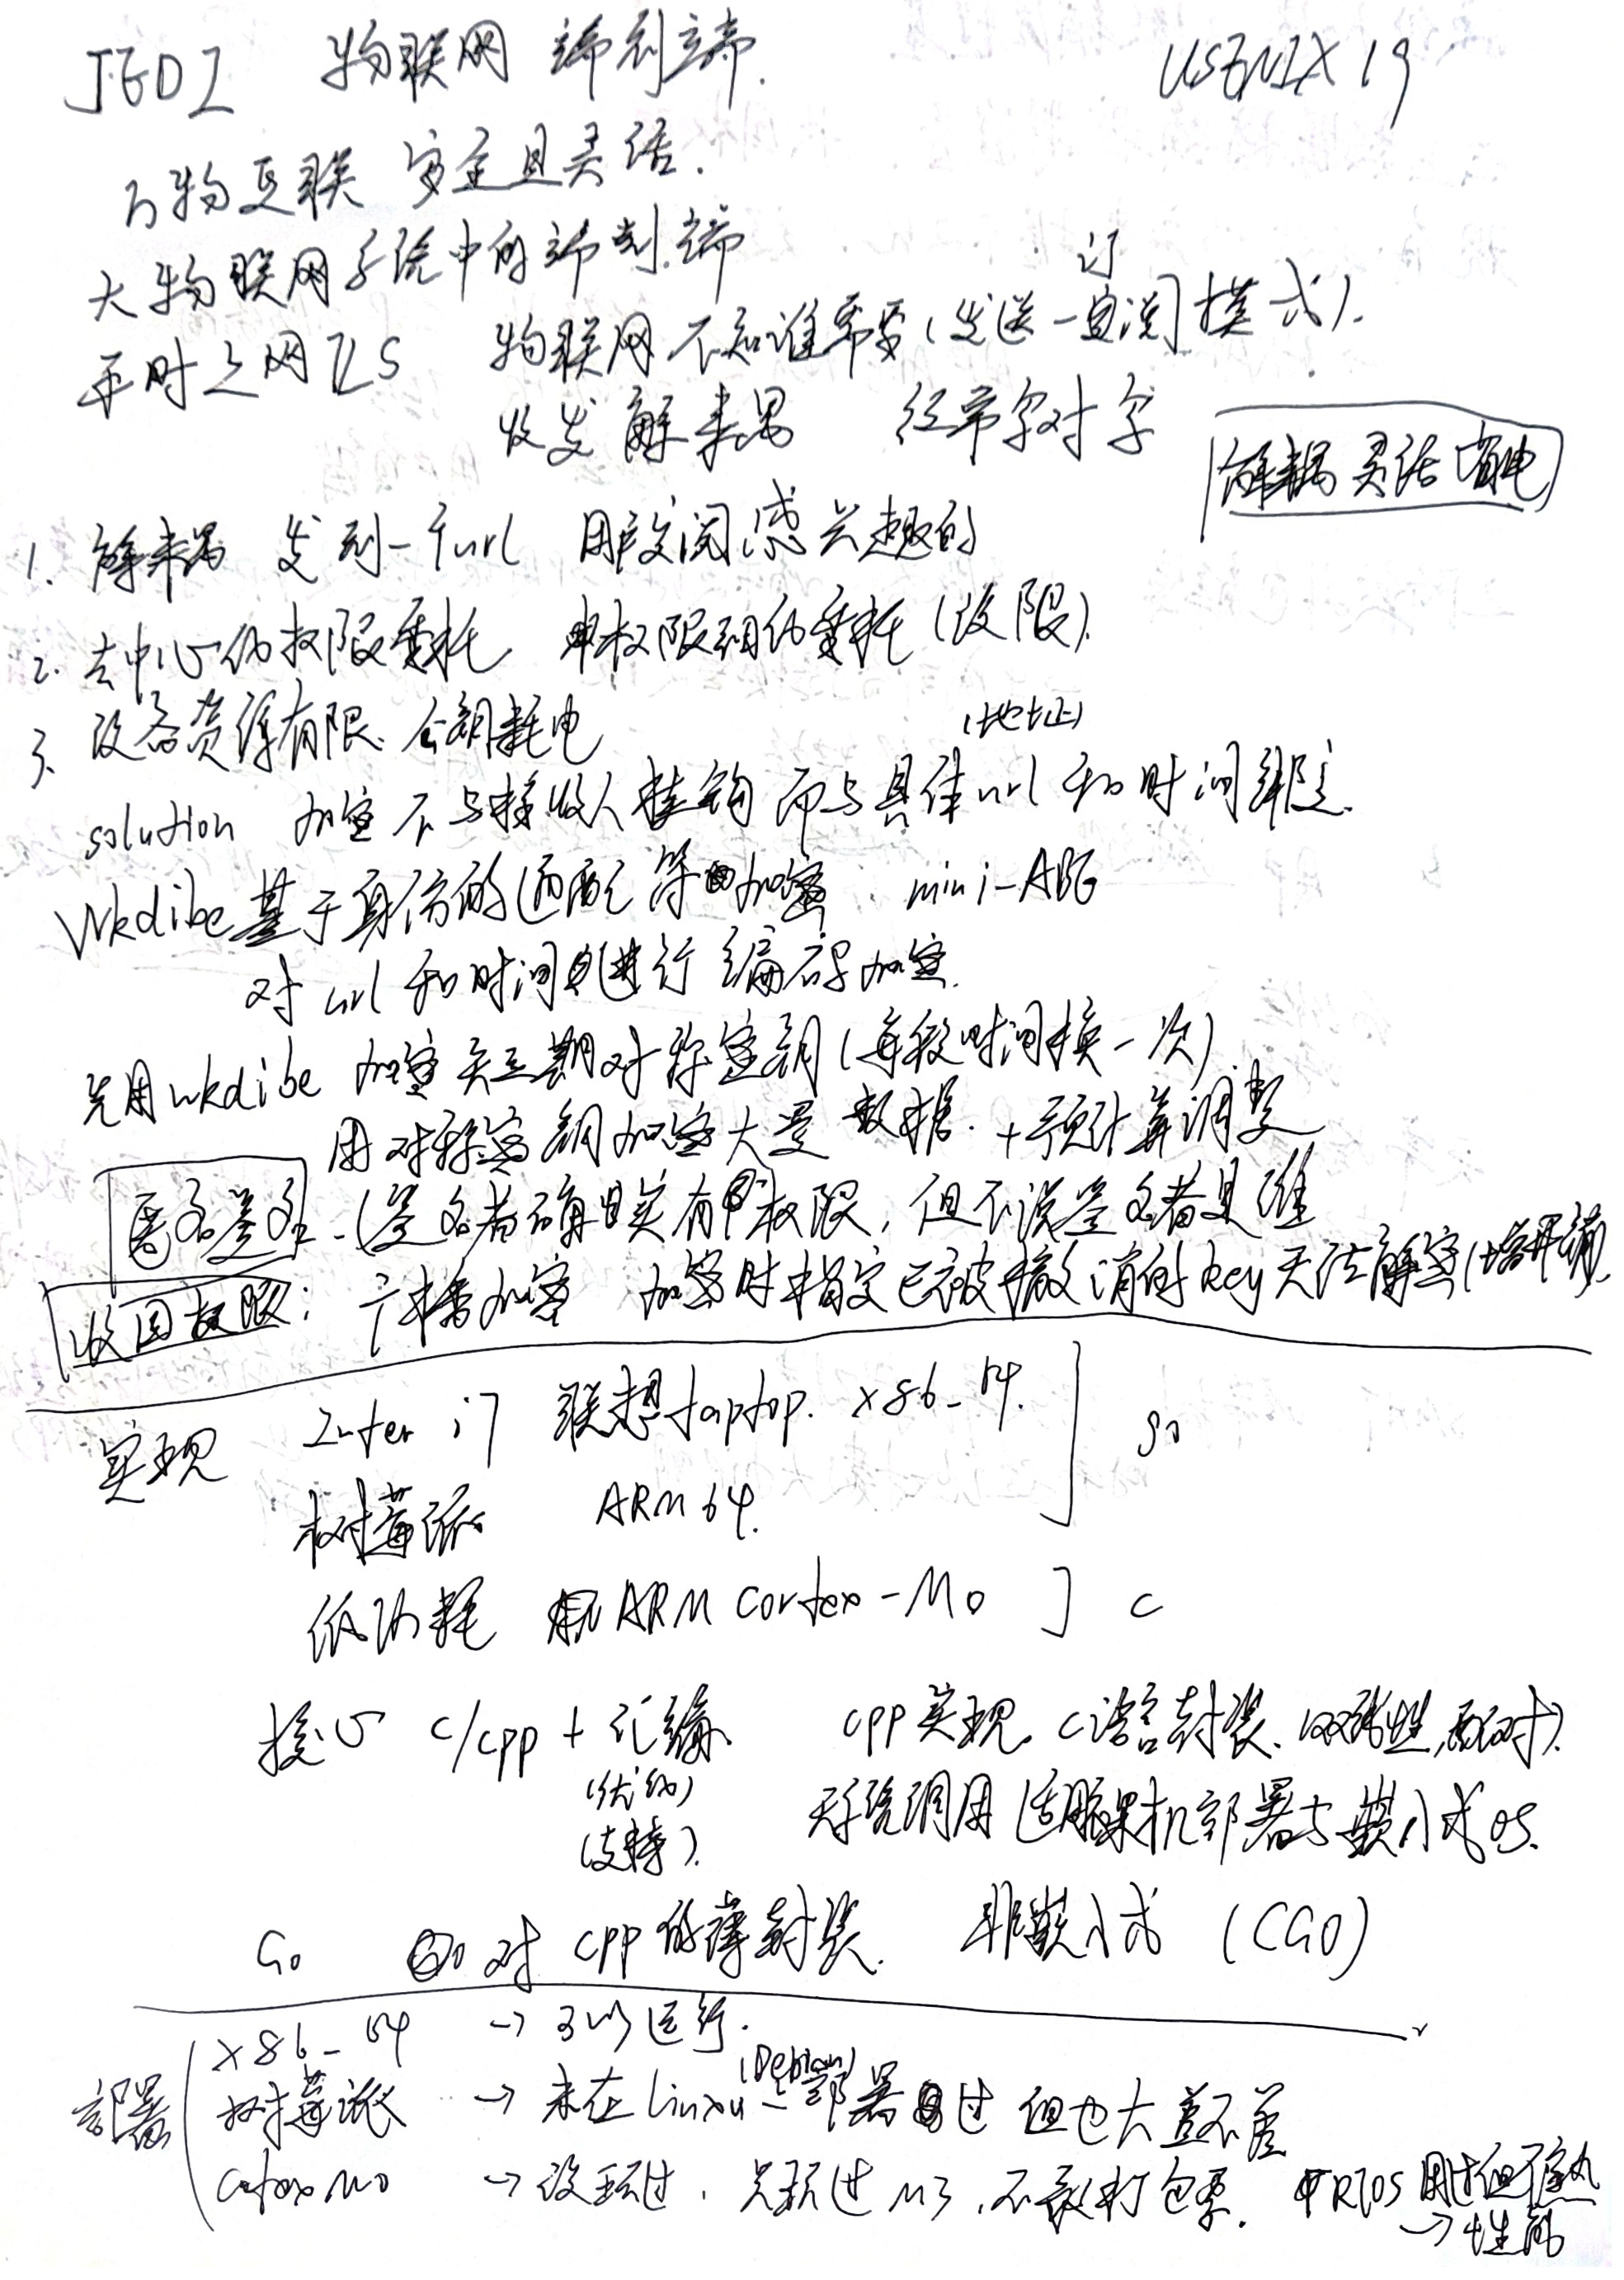 JEDI 物联网 端到端. USENIX 19
万物互联 安全且灵活.
大物联网系统中的端到端
平时上网TLS 物联网不知谁需要(发送一订阅模式).
收发解耦 经常字对字
解耦 灵活 省电
1. 解耦 发到一个url 用户订阅感兴趣的
2. 去中心化权限委托 单权限细化委托(设限).
3. 设备资源有限. 公钥耗电
solution 加密不与接收人挂钩 而与具体url(地址)和时间绑定.
Wkdibe 基于身份的通配符加密. mini-ABE
对url和时间进行编码加密.
先用wkdibe 加密长期对称密钥(每段时间换一次).
用对称密钥加密大量数据. +预计算调整
匿名签名 - (签名者确实有权限, 但不说签名者是谁
收回权限: 广播加密 加密时指定已被撤消的key无法解密(增开销).
实现 Inter i7 联想laptop. x86_64. go
树莓派 ARM64.
低功耗 ARM Cortex-M0 C
核心 c/cpp + 汇编 cpp实现. c语言封装. (双线性,配对).
(优化) 无系统调用 适用裸机部署与嵌入式OS.
(支持).
Go Go对cpp的薄封装. 非嵌入式 (CGO)
部署 x86_64 → 可以运行.
树莓派 → 未在linxu(Debian)部署过 但也大差不差
Cortex M0 → 没玩过. 只玩过M3. 不敢打包票. RTOS 用过但不熟
→ 性能